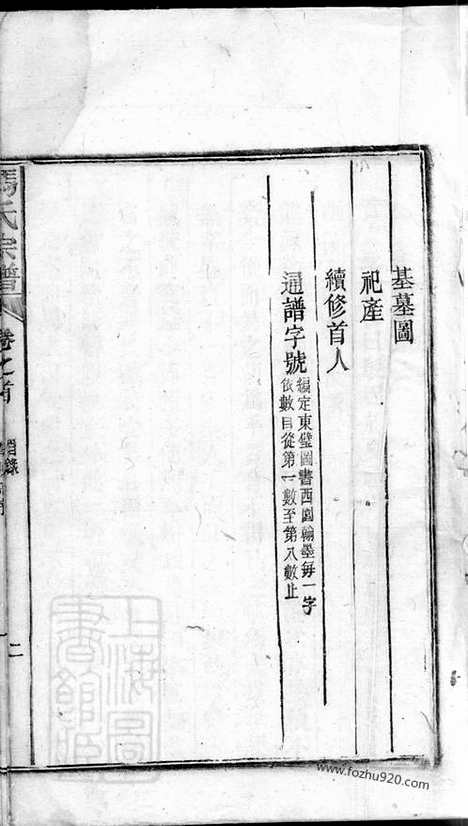 基墓圖
祀產
續修首人
通譜字號
編定東璧圖書西園翰墨每一字
依數目從第一數至第八數止
馮氏宗譜
卷之首
目錄
二
上海圖
書館藏
www.fozhu920.com